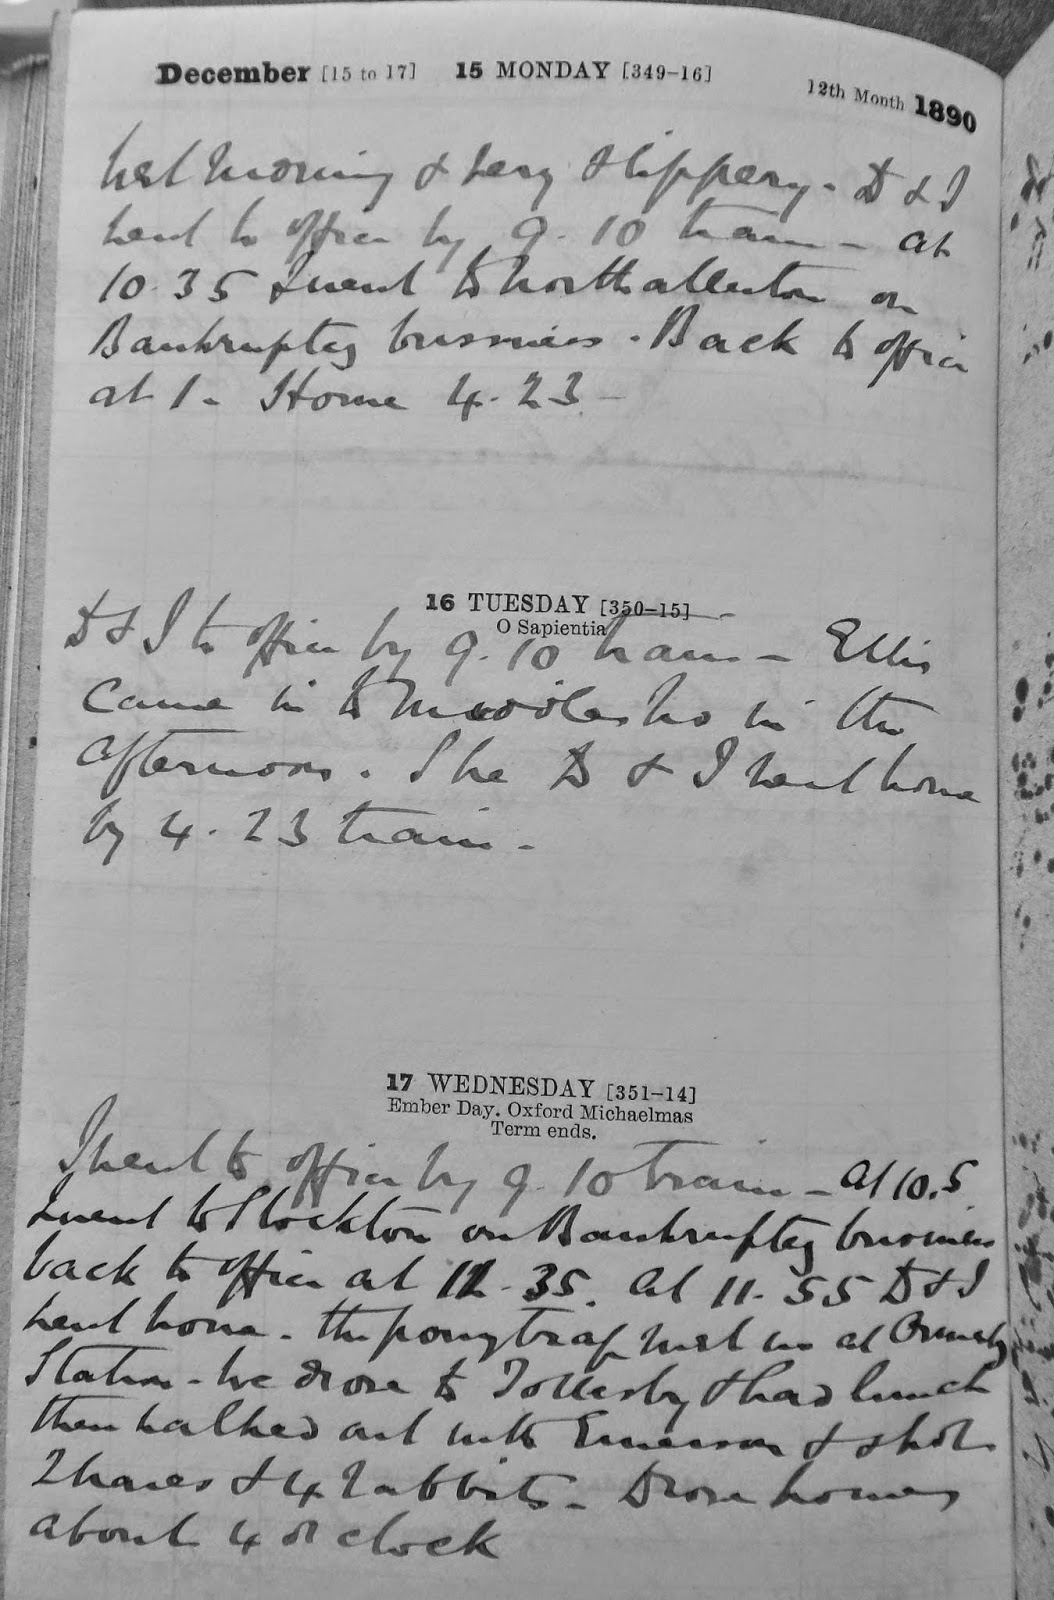 December [15 to 17] 15 MONDAY [349-16] 12th Month 1890
Wet morning & very slippery - D & I
went to office by 9.10 train - at
10.35 I went to Northallerton on
Bankruptcy business. Back to office
at 1 - Home 4.23 -
16 TUESDAY [350-15]
O Sapientia
D & I to office by 9.10 train - Ellis
came in to Middlesbro in the
afternoon. She D & I went home
by 4.23 train -
17 WEDNESDAY [351-14]
Ember Day. Oxford Michaelmas
Term ends.
I went to office by 9.10 train - at 10.5
I went to Stockton on Bankruptcy business
back to office at 11.35. at 11.55 D & I
went home - the pony trap met us at Ormesby
Station - we drove to Tollesby & had lunch
then walked out with Emerson & shot
2 hares & 4 rabbits - Drove home
about 4 o'clock